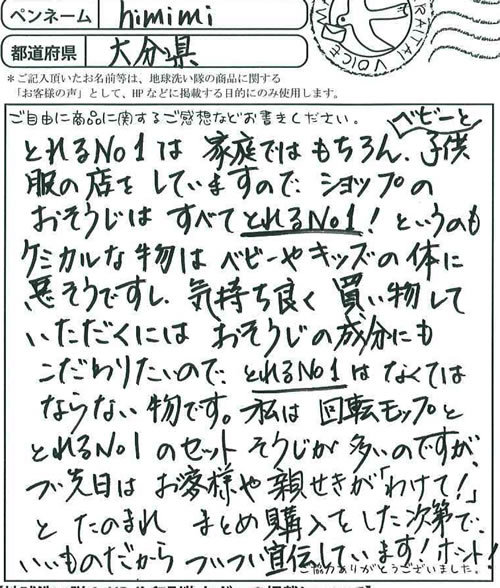 ペンネーム himimi
都道府県 大分県
＊ご記入頂いたお名前等は、地球洗い隊の商品に関する
「お客様の声」として、HPなどに掲載する目的にのみ使用します。
ご自由に商品に関するご感想などお書きください。
ベビーと
とれるNo1は 家庭ではもちろん、子供
服の店をしていますので、ショップの
おそうじは すべてとれるNo1！というのも
ケミカルな物は ベビーやキッズの体に
悪そうですし、気持ち良く 買い物して
いただくには おそうじの成分にも
こだわりたいので、とれるNo1はなくては
ならない物です。私は 回転モップと
とれるNo1のセットそうじが多いのですが、
つい先日は お客様や親せきが「わけて！」
と たのまれ まとめ購入をした次第で、
いいものだから ついつい宣伝しています！ホント！
ご協力ありがとうございました。